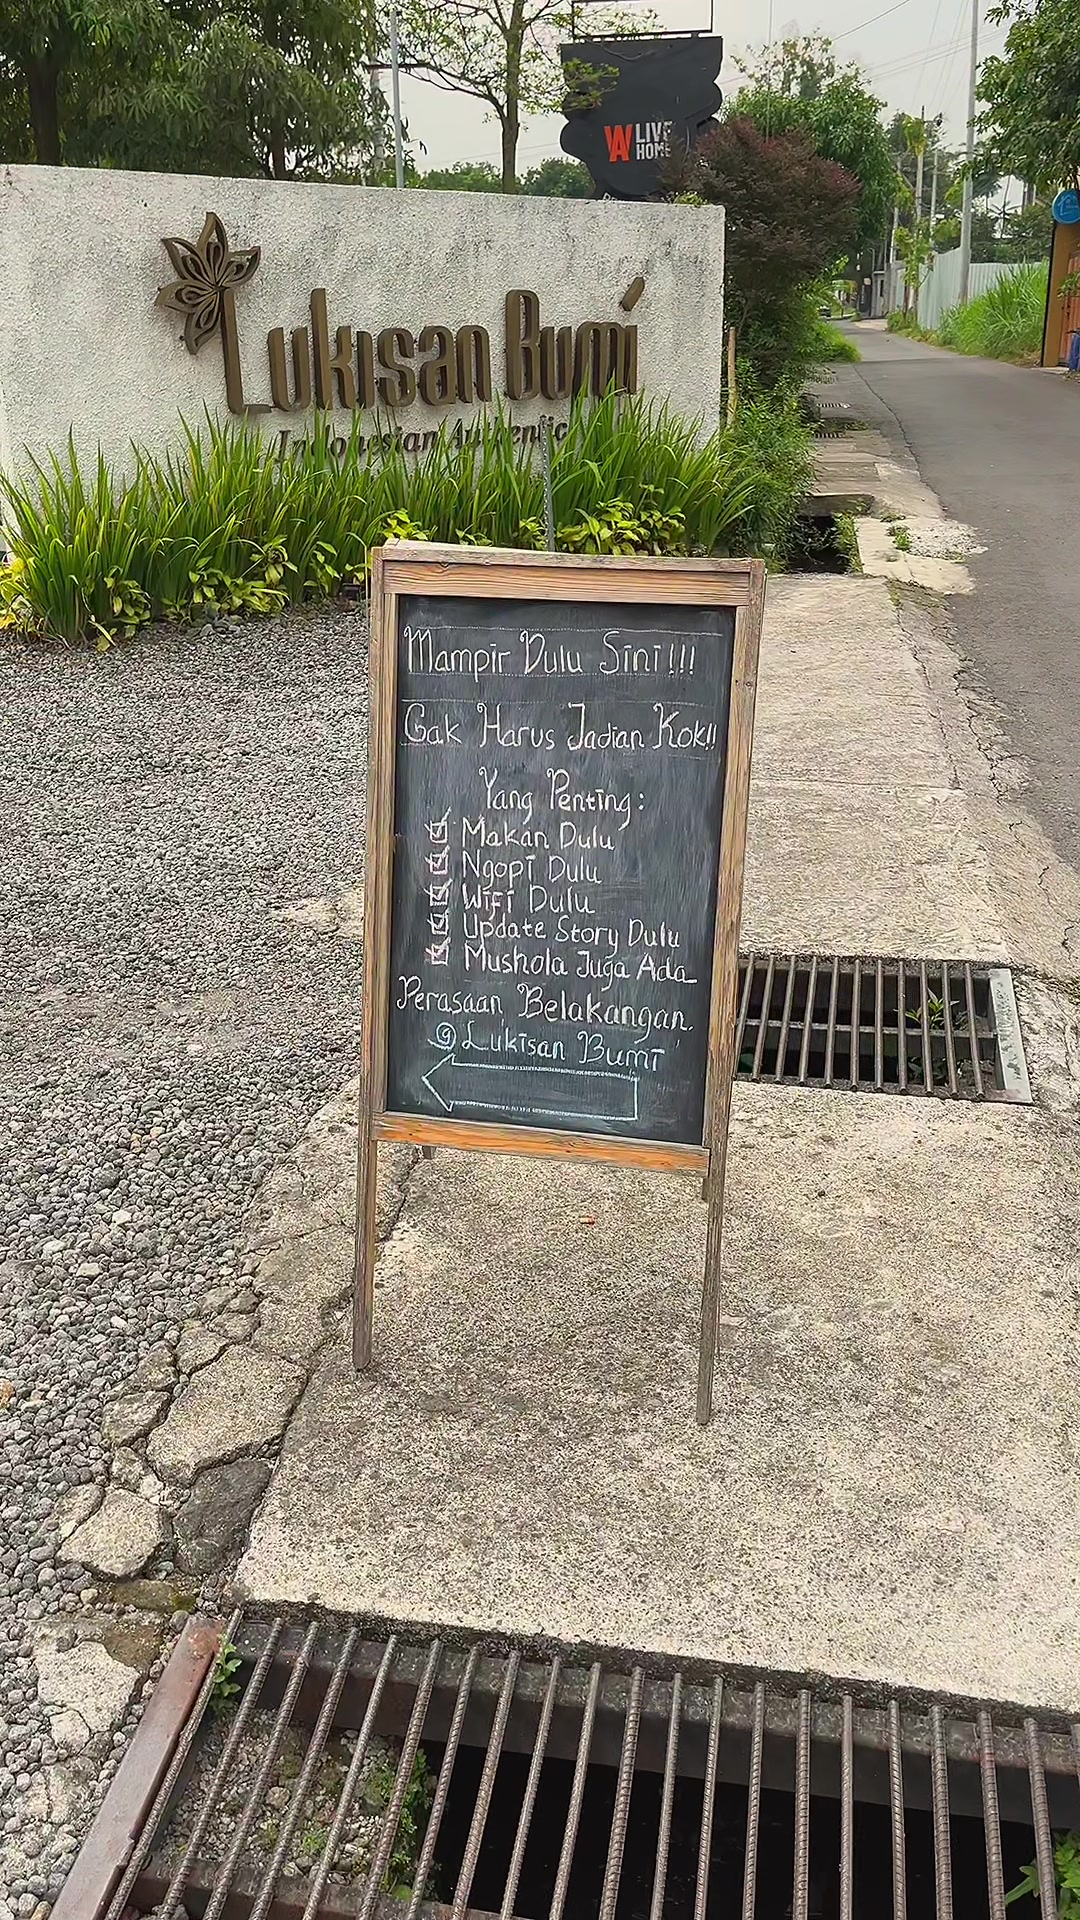 WA LIVE
HOME
Lukisan Bumi
Indonesian Authentic
Mampir Dulu Sini!!!
Gak Harus Jadian Kok!!
Yang Penting:
Makan Dulu
Ngopi Dulu
Wifi Dulu
Update Story Dulu
Mushola Juga Ada
Perasaan Belakangan.
@Lukisan Bumi